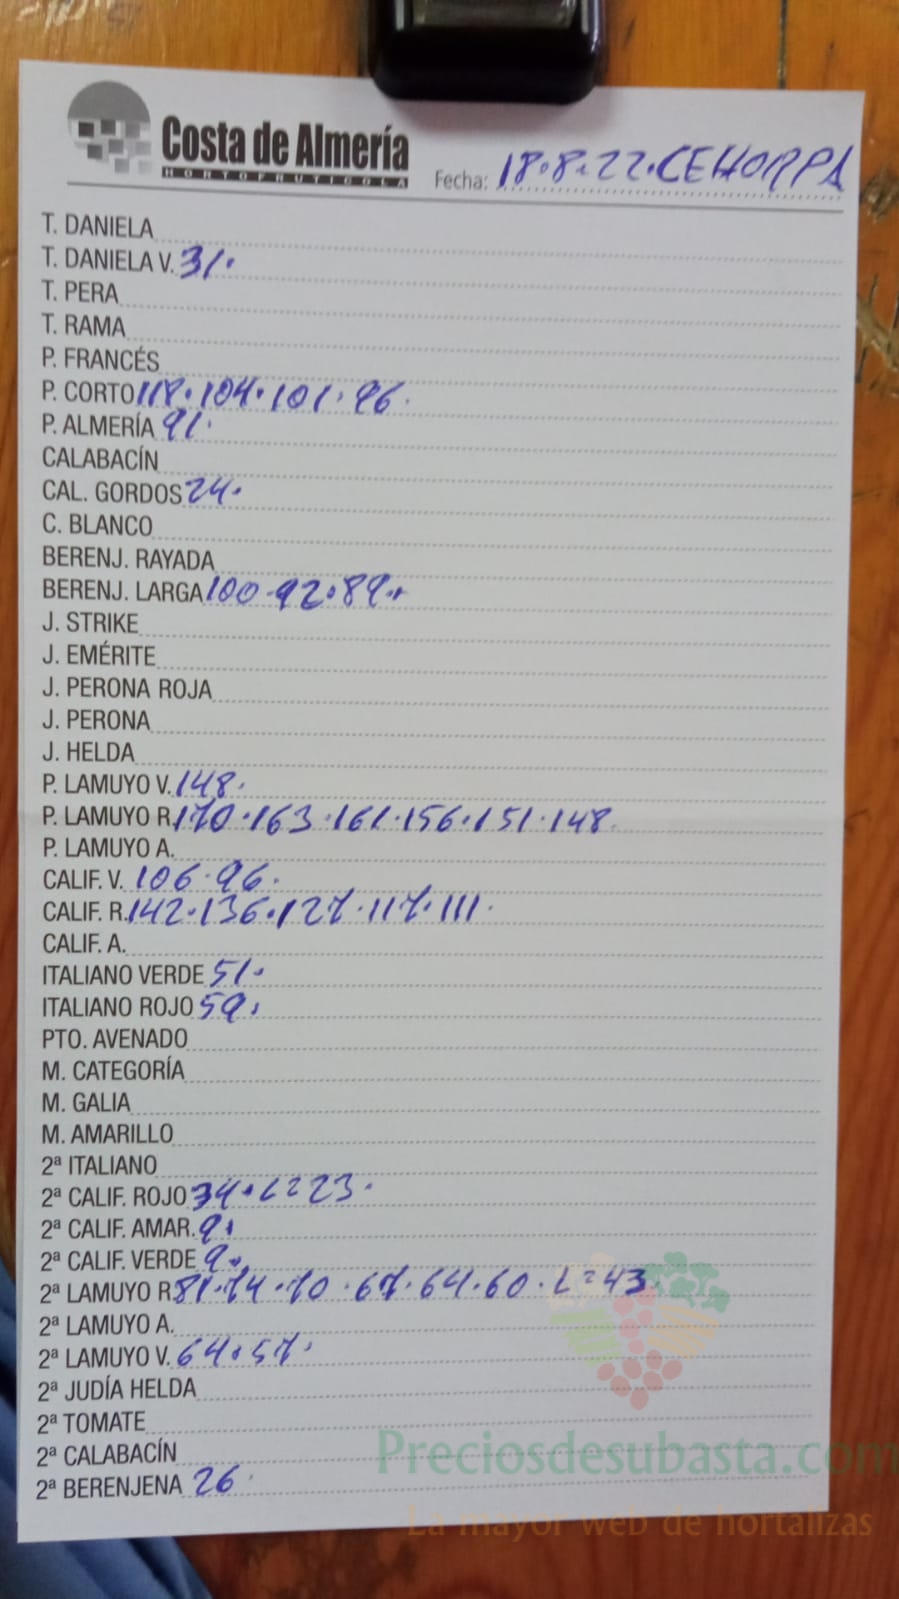 Costa de Almería
HORTOFRUTICOLA
Fecha: 18.8.22.CEHORPA
T. DANIELA
T. DANIELA V. 31.
T. PERA
T. RAMA
P. FRANCÉS
P. CORTO 118.104.101.96.
P. ALMERÍA 91.
CALABACÍN
CAL. GORDOS 24.
C. BLANCO
BERENJ. RAYADA
BERENJ. LARGA 100.92.89.
J. STRIKE
J. EMÉRITE
J. PERONA ROJA
J. PERONA
J. HELDA
P. LAMUYO V. 148.
P. LAMUYO R. 170.163.161.156.151.148.
P. LAMUYO A.
CALIF. V. 106.96.
CALIF. R. 142.136.127.117.111.
CALIF. A.
ITALIANO VERDE 51.
ITALIANO ROJO 59.
PTO. AVENADO
M. CATEGORÍA
M. GALIA
M. AMARILLO
2ª ITALIANO
2ª CALIF. ROJO 34.L=23.
2ª CALIF. AMAR. 9.
2ª CALIF. VERDE 9.
2ª LAMUYO R 81.74.70.67.64.60.L=43.
2ª LAMUYO A.
2ª LAMUYO V. 64.57.
2ª JUDÍA HELDA
2ª TOMATE
2ª CALABACÍN
2ª BERENJENA 26.
Preciosdesubasta.com
La mayor web de hortalizas